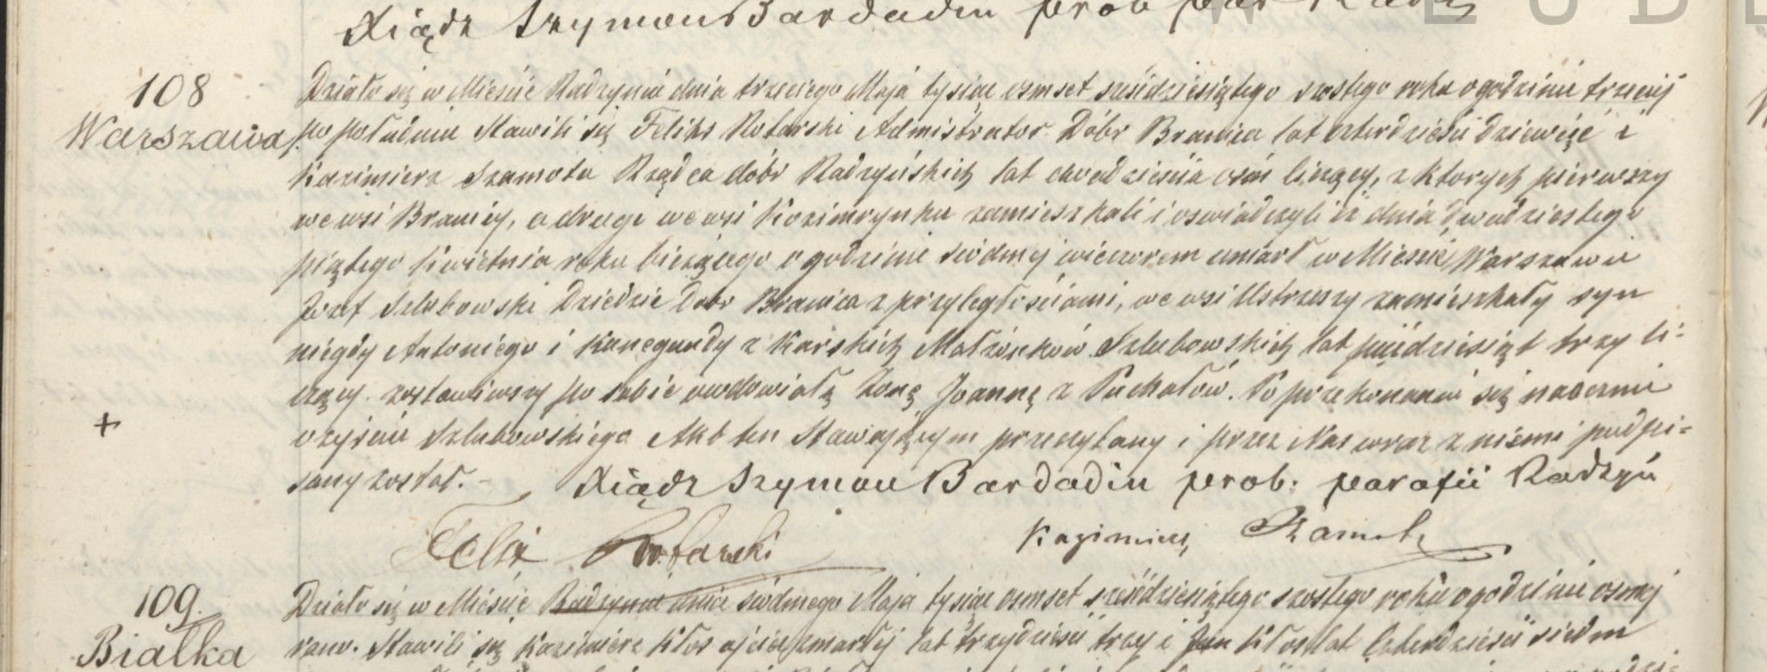 Xiądz Szymon Bardadin prob par Radz
W LUBL
108
Warszawa
Działo się w Mieście Radzyniu dnia trzeciego Maja tysiąc osmset sześćdziesiątego szostego roku o godzinie trzeciej
po południu Stawili się Felix Rotarski Admistrator Dóbr Branica lat czterdzieści dziewięć i
Kazimierz Szamota Rządca dóbr Radzyńskich lat dwadzieścia osm liczący, z ktorych pierwszy
we wsi Branicy, a drugi we wsi Kozimrynku zamieszkali i oswiadczyli iż dnia dwudziestego
piątego kwietnia roku bieżącego o godzinie siodmej wieczorem umarł w Mieście Warszawie
Jozef Szlubowski Dziedzic Dobr Branica z przyległościami, we wsi Ustrzeszy zamieszkały syn
niegdy Antoniego i Kunegundy z Karskich Małżonków Szlubowskich lat pięćdziesiąt trzy li-
czący. zostawiwszy po sobie owdowiałą żonę Joannę z Puchałów. Po przekonaniu się naocznie
o zejściu Szlubowskiego Akt ten Stawającym przeczytany i przez Nas wraz z niemi podpi=
sany został. -
+
Xiądz Szymon Bardadin prob. parafii Radzyń
Felix Rotarski
Kazimierz Szamota
109.
Białka
Działo się w Mieście Radzyniu dnia siódmego Maja tysiąc osmset sześćdziesiątego szostego roku o godzinie osmej
rano. Stawili się Kazimierz Kłos ojciec zmarłej lat trzydzieści trzy i Jan Kłos lat czterdzieści siedm